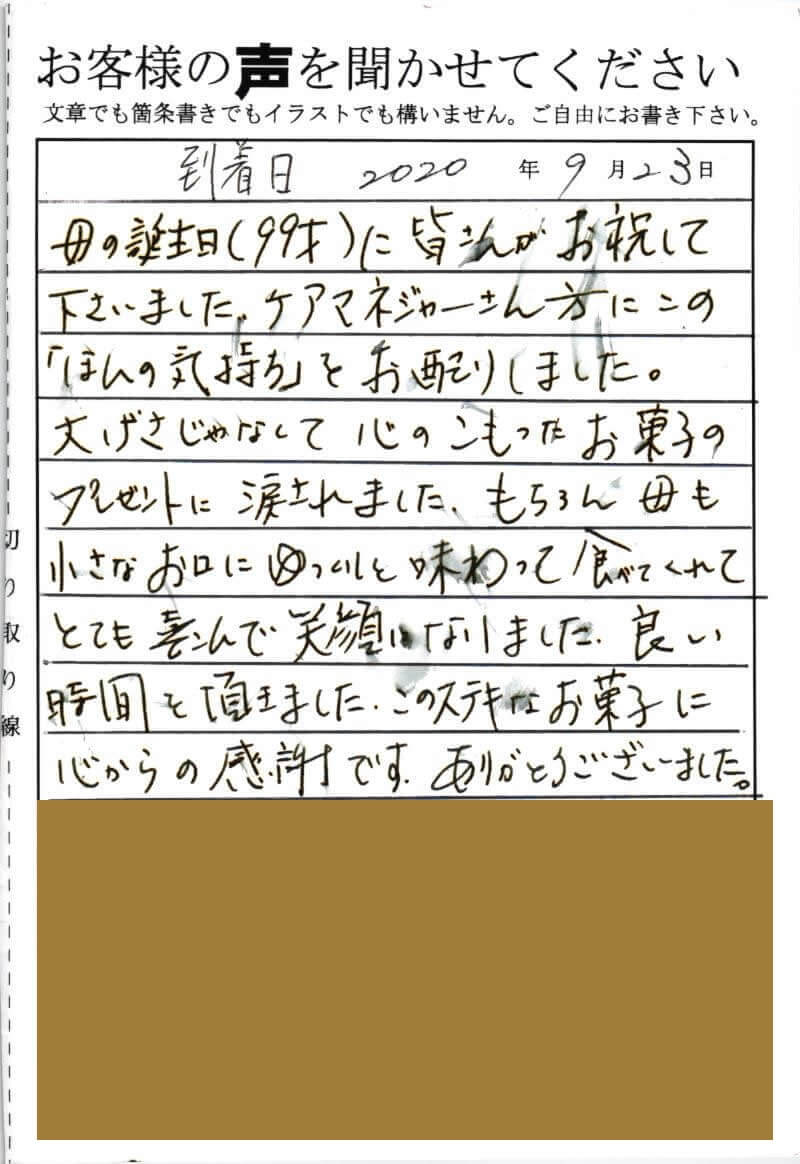 お客様の声を聞かせてください
文章でも箇条書きでもイラストでも構いません。ご自由にお書き下さい。
到着日 2020 年 9 月 23 日
母の誕生日(99才)に皆さんがお祝して
下さいました。ケアマネジャーさん方にこの
「ほんの気持ち」をお配りしました。
大げさじゃなくて心のこもったお菓子の
プレゼントに涙されました。もちろん母も
小さなお口にゆっくりと味わって食べてくれて
とても喜こんで笑顔になりました。良い
時間を頂きました。このステキなお菓子に
心からの感謝です。ありがとうございました。
切り取り線